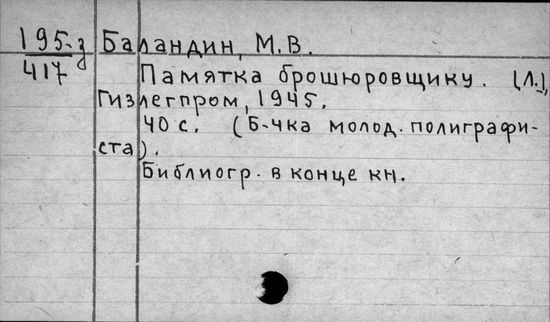 195-з Баландин, М.В.
417
Памятка брошюровщику. [Л.],
Гизлегпром, 1945.
40 с. (Б-чка молод. полиграфи-
ста).
Библиогр. в конце кн.